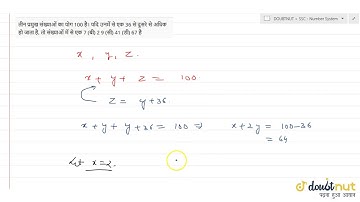 DOUBTNUT > SSC : Number System
तीन प्रमुख संख्याओं का योग 100 है। यदि उनमें से एक 36 से दूसरे से अधिक
हो जाता है, तो संख्याओं में से एक 7 (बी) 2 9 (सी) 41 (डी) 67 है
x , y, z.
x + y + z = 100
z = y+36.
x + y + y +36 = 100 ⇒ x + 2y = 100-36
= 64
Let x=2.
doubtnut